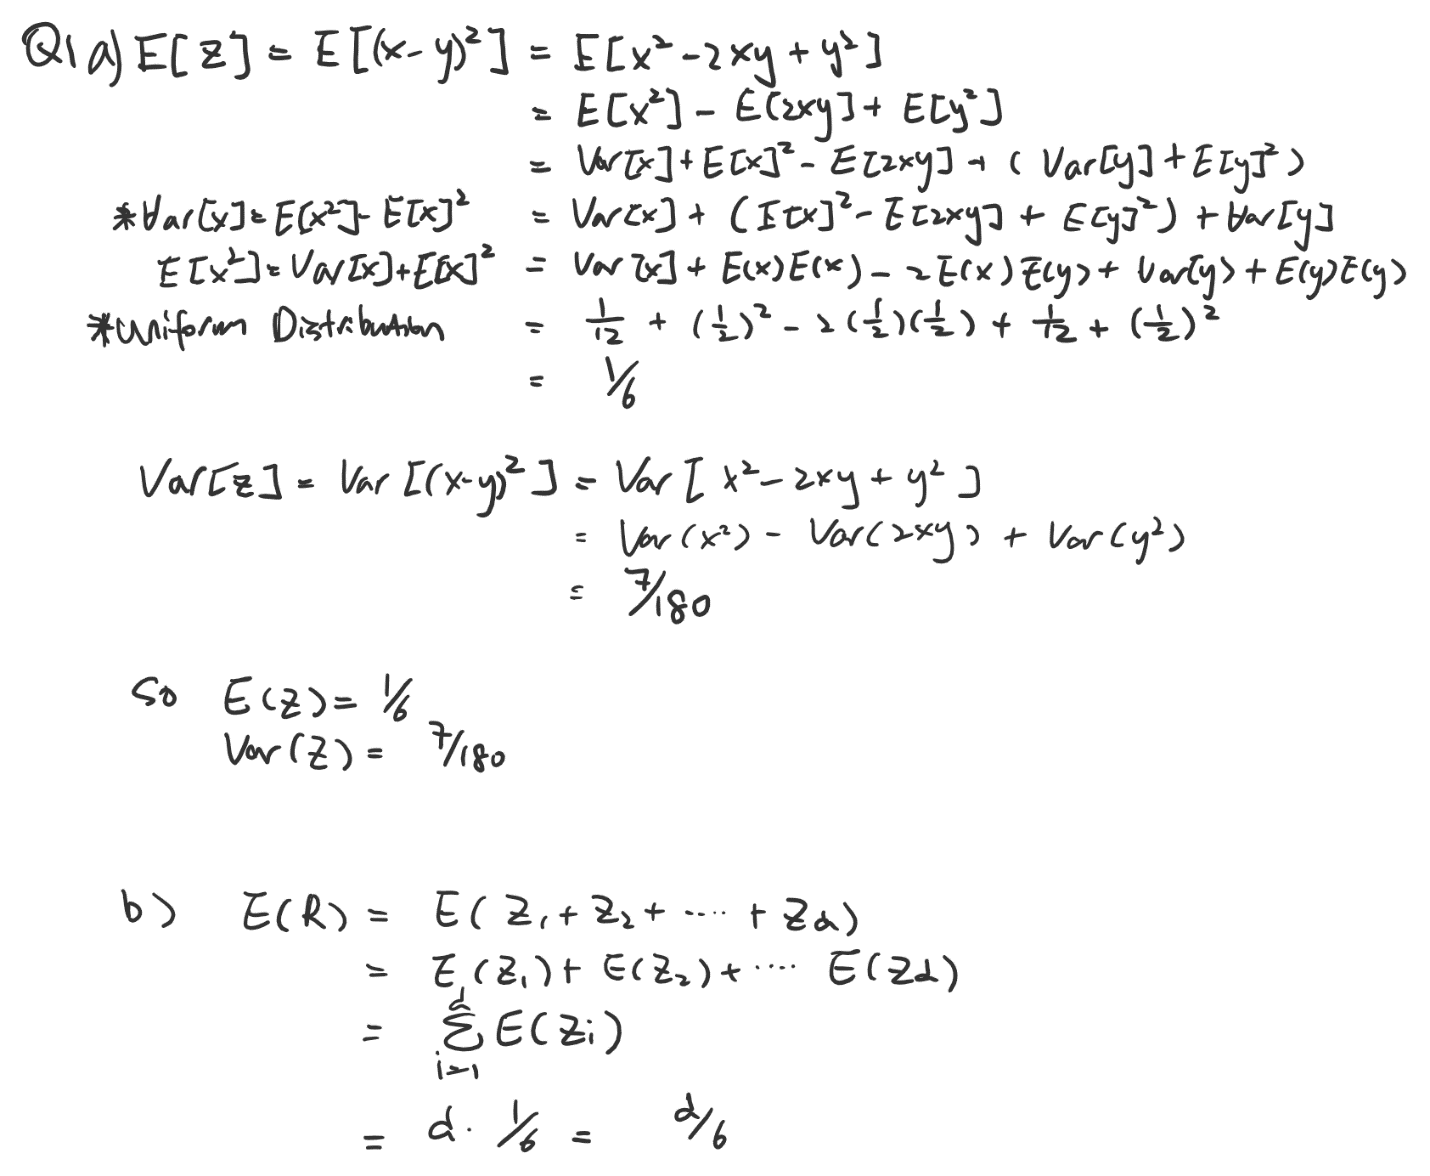 Q1 a) E[z] = E[(x-y)²] = E[x² - 2xy + y²]
= E[x²] - E[2xy] + E[y²]
= Var[x] + E[x]² - E[2xy] + (Var[y] + E[y]²)
*Var[x] = E[x²] - E[x]² = Var[x] + (E[x]² - E[2xy] + E[y]²) + Var[y]
E[x²] = Var[x] + E[x]² = Var[x] + E(x)E(x) - 2E(x)E(y) + Var(y) + E(y)E(y)
*Uniform Distribution = 1/12 + (1/2)² - 2(1/2)(1/2) + 1/12 + (1/2)²
= 1/6
Var[z] = Var[(x-y)²] = Var[x² - 2xy + y²]
= Var(x²) - Var(2xy) + Var(y²)
= 7/180
So E(z) = 1/6
Var(z) = 7/180
b) E(R) = E(Z₁ + Z₂ + ···· + Zd)
= E(Z₁) + E(Z₂) + ···· E(Zd)
= d∑i=1 E(Zi)
= d · 1/6 = d/6